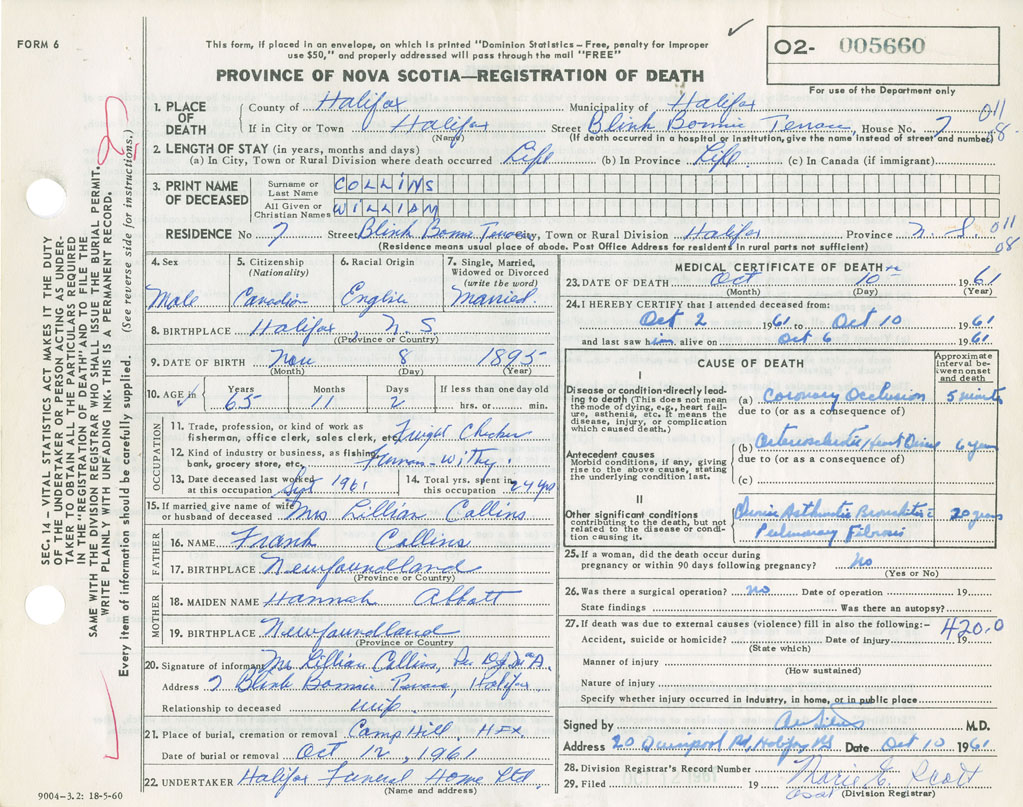 FORM 6
This form, if placed in an envelope, on which is printed "Dominion Statistics – Free, penalty for improper
use $50," and properly addressed will pass through the mail "FREE"
O2- 005660
PROVINCE OF NOVA SCOTIA—REGISTRATION OF DEATH
For use of the Department only
1. PLACE OF DEATH
County of Halifax Municipality of Halifax 011
If in City or Town Halifax (Name) Street Blink Bonnie Terrace, House No. 7 08
(If death occurred in a hospital or institution, give the name instead of street and number)
2. LENGTH OF STAY (in years, months and days)
(a) In City, Town or Rural Division where death occurred Life (b) In Province Life (c) In Canada (if immigrant)
3. PRINT NAME OF DECEASED
Surname or Last Name COLLINS
All Given or Christian Names WILLIAM
RESIDENCE No 7 Street Blink Bonnie Terrace City, Town or Rural Division Halifax Province N. S. 011
08
(Residence means usual place of abode. Post Office Address for residents in rural parts not sufficient)
4. Sex
Male
5. Citizenship (Nationality)
Canadian
6. Racial Origin
English
7. Single, Married, Widowed or Divorced (write the word)
Married
8. BIRTHPLACE Halifax, N. S.
(Province or Country)
9. DATE OF BIRTH Nov 8 1895
(Month) (Day) (Year)
10. AGE in Years 65 Months 11 Days 2 If less than one day old hrs. or min.
OCCUPATION
11. Trade, profession, or kind of work as
fisherman, office clerk, sales clerk, etc. Freight Checker
12. Kind of industry or business, as fishing,
bank, grocery store, etc. Furness-Withy
13. Date deceased last worked
at this occupation Sept 1961
14. Total yrs. spent in
this occupation 24 yrs
15. If married give name of wife
or husband of deceased Mrs Lillian Collins
FATHER
16. NAME Frank Collins
17. BIRTHPLACE Newfoundland
(Province or Country)
MOTHER
18. MAIDEN NAME Hannah Abbott
19. BIRTHPLACE Newfoundland
(Province or Country)
20. Signature of informant Mrs Lillian Collins, Per
Address 7 Blink Bonnie Terrace, Halifax
Relationship to deceased wife
21. Place of burial, cremation or removal Camp Hill, HFX
Date of burial or removal Oct 12, 1961
22. UNDERTAKER Halifax Funeral Home Ltd
(Name and address)
9004-3.2: 18-5-60
MEDICAL CERTIFICATE OF DEATH
23. DATE OF DEATH Oct 10 1961
(Month) (Day) (Year)
24. I HEREBY CERTIFY that I attended deceased from:
Oct 2 1961 to Oct 10 1961
and last saw him alive on Oct 6 1961
CAUSE OF DEATH
Approximate interval between onset and death
I
Disease or condition directly leading
to death (This does not mean
the mode of dying, e.g., heart failure,
asthenia, etc. It means the
disease, injury, or complication
which caused death.)
(a) Coronary Occlusion 5 minutes
due to (or as a consequence of)
(b) Arteriosclerotic Heart Disease 6 years
due to (or as a consequence of)
(c)
Antecedent causes
Morbid conditions, if any, giving
rise to the above cause, stating
the underlying condition last.
II
Other significant conditions
contributing to the death, but not
related to the disease or condition
causing it.
Chronic Asthmatic Bronchitis c 20 years
Pulmonary Fibrosis
25. If a woman, did the death occur during
pregnancy or within 90 days following pregnancy? No
(Yes or No)
26. Was there a surgical operation? no Date of operation 19
State findings Was there an autopsy?
27. If death was due to external causes (violence) fill in also the following:- 420.0
Accident, suicide or homicide? Date of injury 19
(State which)
Manner of injury
(How sustained)
Nature of injury
Specify whether injury occurred in industry, in home, or in public place
Signed by M.D.
Address 20 Quinpool Rd, Halifax NS Date Oct 10 1961
28. Division Registrar's Record Number
29. Filed OCT 12 1961 19 Marie E. Scott
(Division Registrar)
SEC. 14 – VITAL STATISTICS ACT MAKES IT THE DUTY
OF THE UNDERTAKER OR PERSON ACTING AS UNDERTAKER
TO OBTAIN ALL THE PARTICULARS REQUIRED
IN THE "REGISTRATION OF DEATH" AND TO FILE THE
SAME WITH THE DIVISION REGISTRAR WHO SHALL ISSUE THE BURIAL PERMIT.
WRITE PLAINLY WITH UNFADING INK. THIS IS A PERMANENT RECORD.
Every item of information should be carefully supplied. (See reverse side for instructions.)